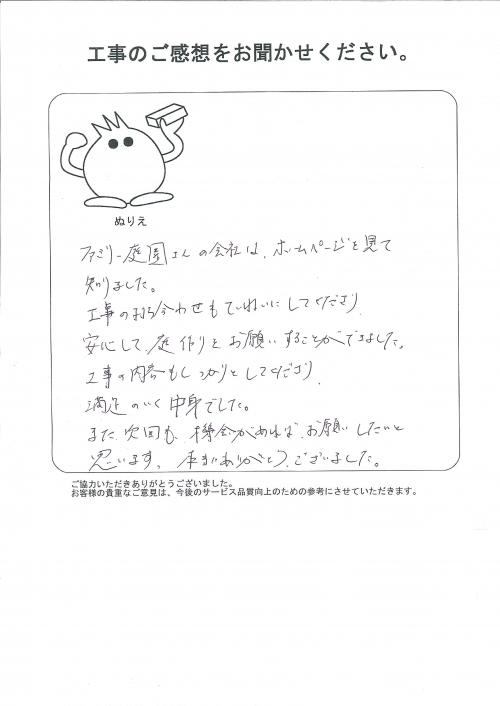 工事のご感想をお聞かせください。
ぬりえ
ファミリー庭園さんの会社は、ホームページを見て
知りました。
工事の打ち合わせもていねいにしてくださり
安心して庭作りをお願いすることができました。
工事の内容もしっかりとしてくださり、
満足のいく中身でした。
また、次回も、機会があれば、お願いしたいと
思います。本当にありがとうございました。
ご協力いただきありがとうございました。
お客様の貴重なご意見は、今後のサービス品質向上のための参考にさせていただきます。